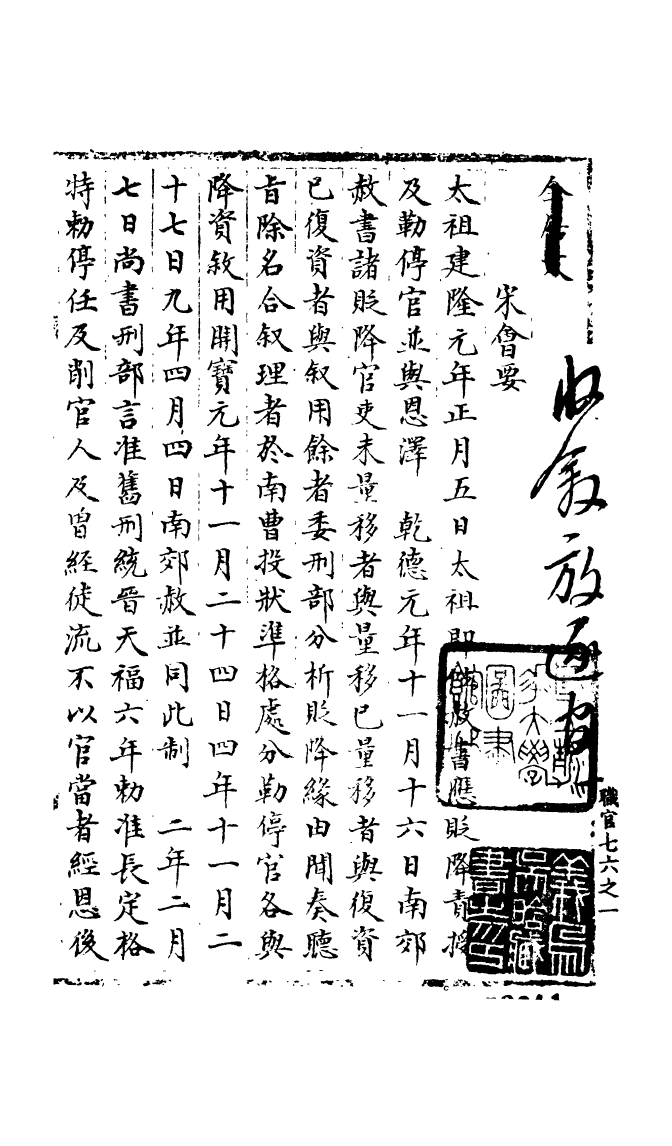 收敘放逐官
宋會要
太祖建隆元年正月五日太祖即位赦書應貶降責授
及勒停官並與恩澤　乾德元年十一月十六日南郊
赦書諸貶降官吏未量移者與量移已量移者與復資
已復資者與叙用餘者委刑部分析貶降緣由聞奏聽
旨除名合叙理者於南曹投狀準格處分勒停官各與
降資敘用開寶元年十一月二十四日四年十一月二
十七日九年四月四日南郊赦並同此制　二年二月
七日尚書刑部言准舊刑統晉天福六年勅准長定格
特勅停任及削官人及曾經徒流不以官當者經恩後
職官七六之一